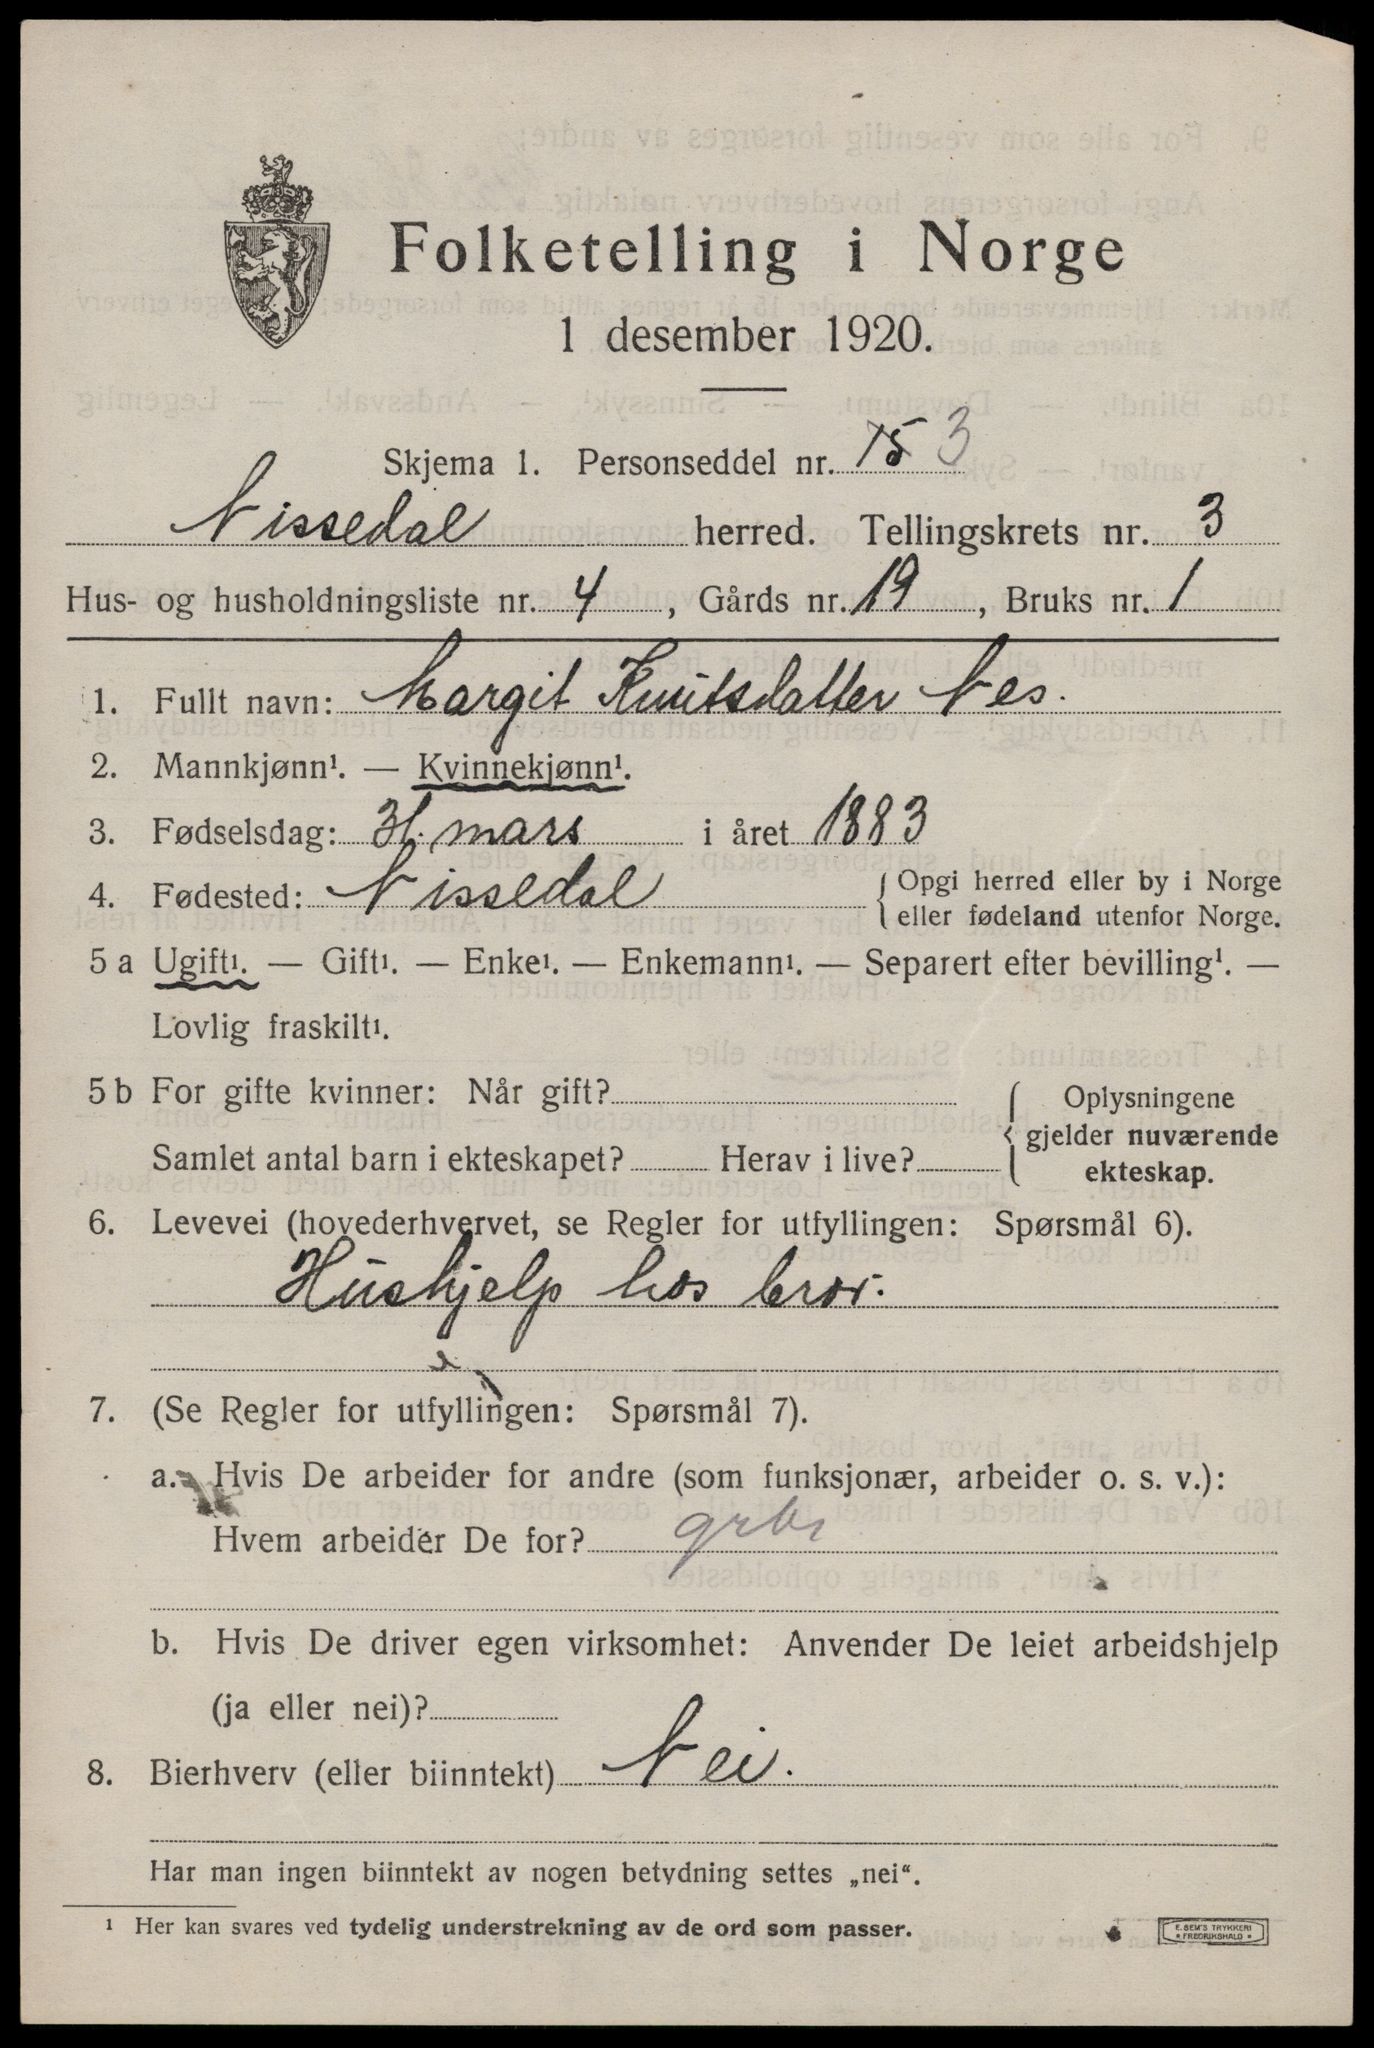 Folketelling i Norge
1 desember 1920.
Skjema 1. Personseddel nr. 15 3
Nissedal herred. Tellingskrets nr. 3
Hus- og husholdningsliste nr. 4, Gårds nr. 19, Bruks nr. 1
1. Fullt navn: Margit Knutsdatter Nes.
2. Mannkjønn¹. — Kvinnekjønn¹.
3. Fødselsdag: 31. mars i året 1883
4. Fødested: Nissedal { Opgi herred eller by i Norge
eller fødeland utenfor Norge.
5 a Ugift¹. — Gift¹. — Enke¹. — Enkemann¹. — Separert efter bevilling¹. —
Lovlig fraskilt¹.
5 b For gifte kvinner: Når gift?
Samlet antal barn i ekteskapet? Herav i live?
{ Oplysningene
gjelder nuværende
ekteskap.
6. Levevei (hovederhvervet, se Regler for utfyllingen: Spørsmål 6).
Hushjelp hos bror.
7. (Se Regler for utfyllingen: Spørsmål 7).
a. Hvis De arbeider for andre (som funksjonær, arbeider o. s. v.):
Hvem arbeider De for?
b. Hvis De driver egen virksomhet: Anvender De leiet arbeidshjelp
(ja eller nei)?
8. Bierhverv (eller biinntekt) Nei.
Har man ingen biinntekt av nogen betydning settes „nei“.
¹ Her kan svares ved tydelig understrekning av de ord som passer.
E. SEM'S TRYKKERI
* FREDRIKSHALD *